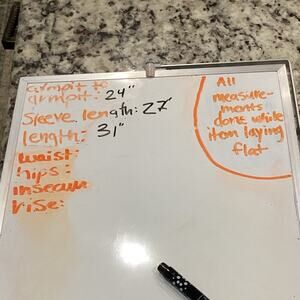 armpit to
armpit: 24"
Sleeve length: 27"
length: 31"
waist:
hips:
insecum
rise:
All
measure-
ments
done while
item laying
flat